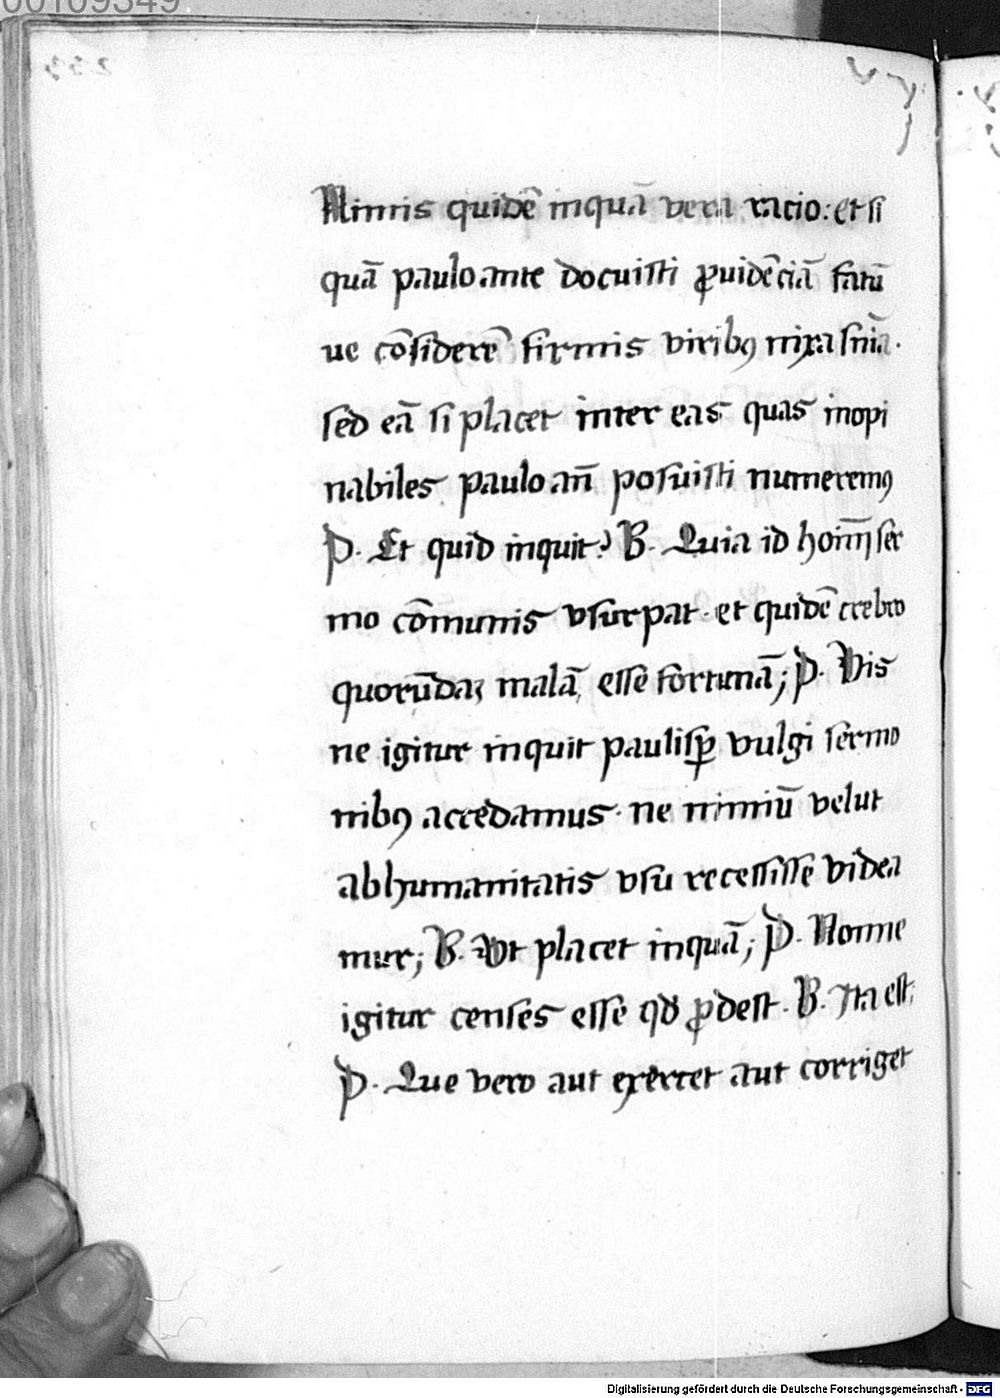 00109349
Nimis quidē inquā vera racio: et si
quā paulo ante docuisti ꝓuidēciā fatū
ue cōsiderē firmis viribꝯ nixa snīa.
sed eā si placet inter eas quas inopi
nabiles paulo an̄ posuisti numeremꝯ
P. Et quid inquit? B. Quia id hoīm̄ ser
mo cōmunis vsurpat. et quidē crebro
quorūdaꝫ malā esse fortunā; P. Vis
ne igitur inquit paulisꝑ vulgi sermo
nibꝯ accedamus. ne nimiū velut
ab humanitatis vsu recessisse videa
mur; B. Vt placet inquā; P. Nonne
igitur censes esse qd̄ ꝓdest. B. Ita est.
P. Que vero aut exercet aut corriget
Digitalisierung gefördert durch die Deutsche Forschungsgemeinschaft - DFG